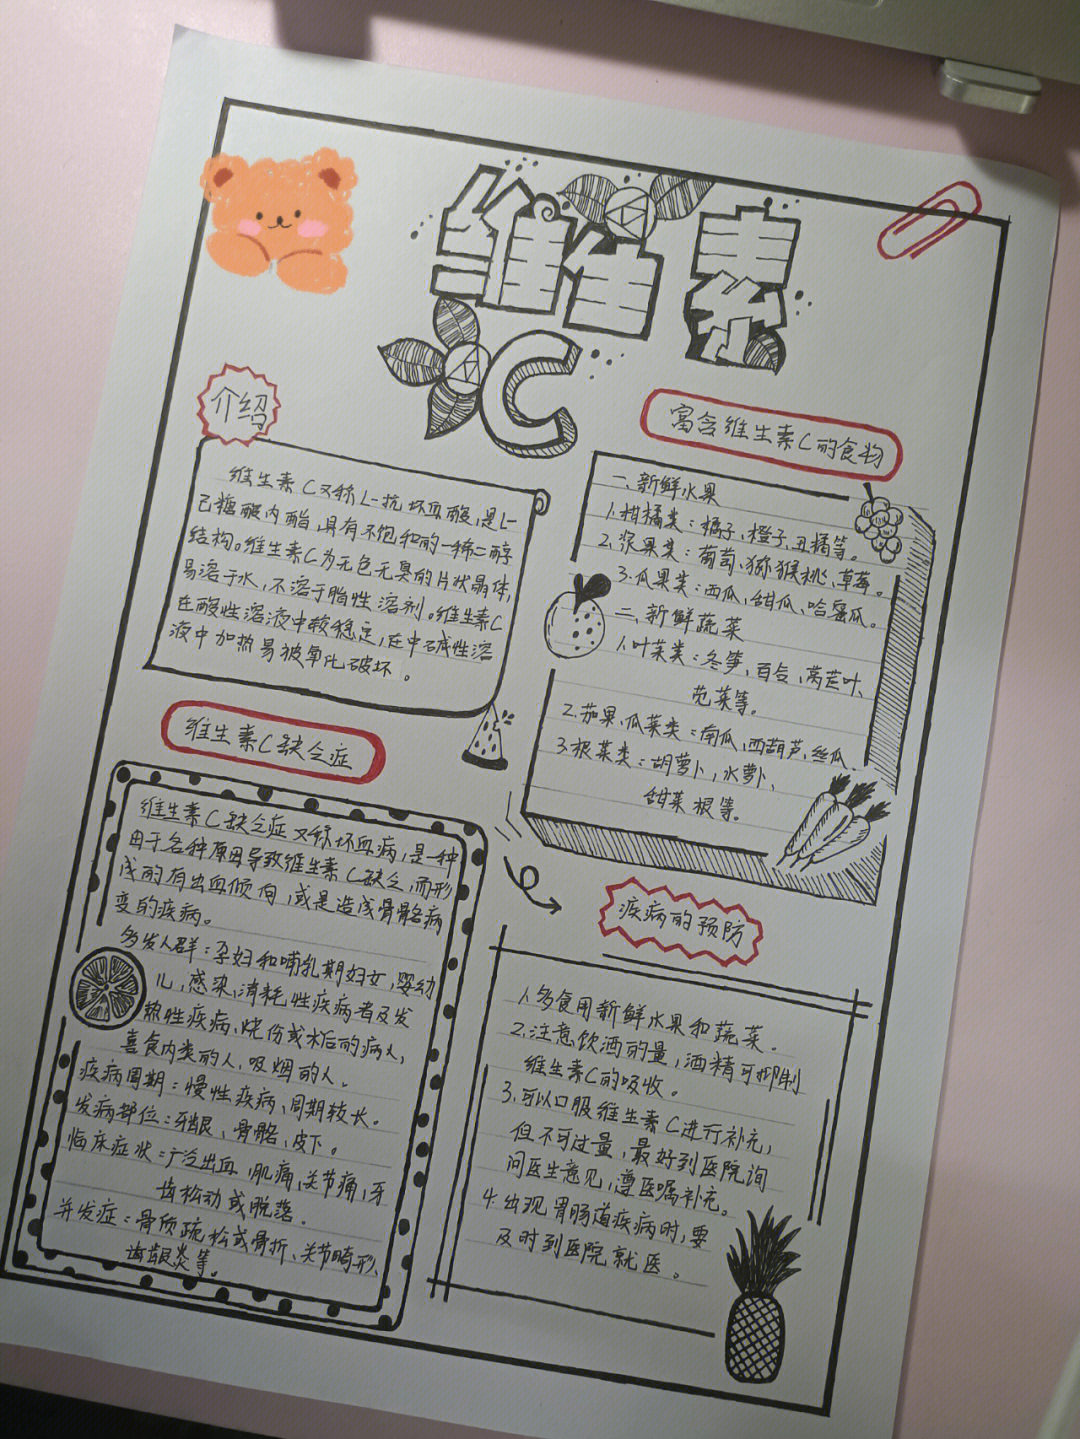 维生素
C
介绍
维生素C又称L-抗坏血酸,是L-
己糖酸内酯,具有不饱和的一烯二醇
结构。维生素C为无色无臭的片状晶体,
易溶于水,不溶于脂性溶剂。维生素C
在酸性溶液中较稳定,在中碱性溶
液中加热易被氧化破坏。
富含维生素C的食物
一、新鲜水果
1.柑橘类:橘子、橙子、丑橘等。
2.浆果类:葡萄、猕猴桃、草莓。
3.瓜果类:西瓜,甜瓜、哈密瓜。
二、新鲜蔬菜
1.叶菜类:冬笋、百合、莴苣叶、
苋菜等。
2.茄果、瓜菜类:南瓜,西葫芦,丝瓜
3.根菜类:胡萝卜,水萝卜、
甜菜根等。
维生素C缺乏症
维生素C缺乏症又称坏血病,是一种
由于各种原因导致维生素C缺乏,而形
成的有出血倾向,或是造成骨骼病
变的疾病。
多发人群:孕妇和哺乳期妇女,婴幼
儿,感染,消耗性疾病者及发
热性疾病、烧伤或术后的病人,
喜食肉类的人、吸烟的人。
疾病周期:慢性疾病、周期较长。
发病部位:牙龈、骨骼、皮下。
临床症状:广泛出血,肌痛,关节痛,牙
齿松动或脱落。
并发症:骨质疏松或骨折、关节畸形、
齿龈炎等。
疾病的预防
1.多食用新鲜水果和蔬菜。
2.注意饮酒的量,酒精可抑制
维生素C的吸收。
3.可以口服维生素C进行补充,
但不可过量,最好到医院询
问医生意见,遵医嘱补充。
4.出现胃肠道疾病时,要
及时到医院就医。